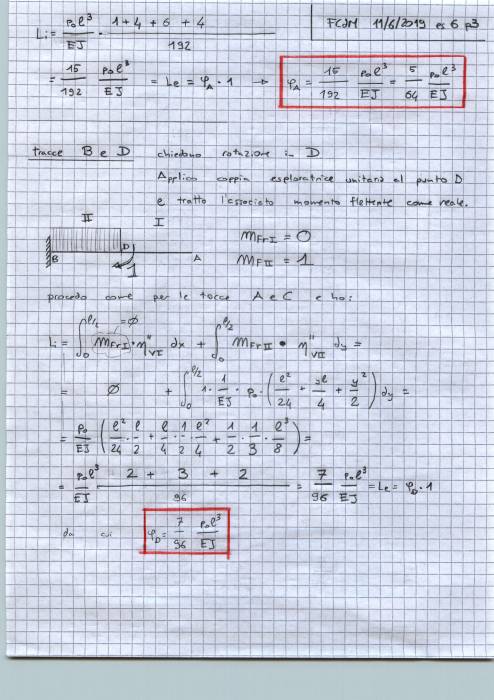 FCdM 11/6/2019 es 6 p3
Li = p₀l³/EJ · (1 + 4 + 6 + 4)/192
= 15/192 p₀l³/EJ = Le = φ_A · 1 → φ_A = 15/192 p₀l³/EJ = 5/64 p₀l³/EJ
tracce B e D chiedono rotazione in D
Applico coppia esploratrice unitaria al punto D
e tratto l'associato momento flettente come reale.
II I
B D A 1
M_FrI = 0
M_FII = 1
procedo come per le tracce A e C e ho:
Li = ∫₀^(l/2) M_FrI · η''_VI dx + ∫₀^(l/2) M_FrII · η''_VII dy =
=∅
= ∅ + ∫₀^(l/2) 1 · 1/EJ · p₀ · (l²/24 + yl/4 + y²/2) dy =
= p₀/EJ (l²/24 · l/2 + l/4 · 1/2 · l²/4 + 1/2 · 1/3 · l³/8) =
= p₀l³/EJ (2 + 3 + 2)/96 = 7/96 p₀l³/EJ = Le = φ_D · 1
da cui φ_D = 7/96 p₀l³/EJ